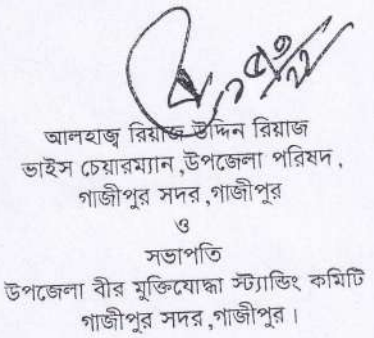 আলহাজ্ব রিয়াজ উদ্দিন রিয়াজ
ভাইস চেয়ারম্যান ,উপজেলা পরিষদ ,
গাজীপুর সদর ,গাজীপুর
ও
সভাপতি
উপজেলা বীর মুক্তিযোদ্ধা স্ট্যান্ডিং কমিটি
গাজীপুর সদর ,গাজীপুর ।